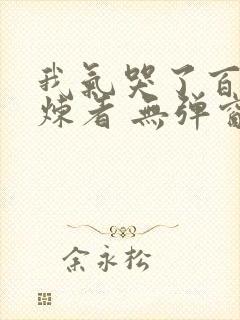 我氣哭了百
煉者 無弹窗
余永松